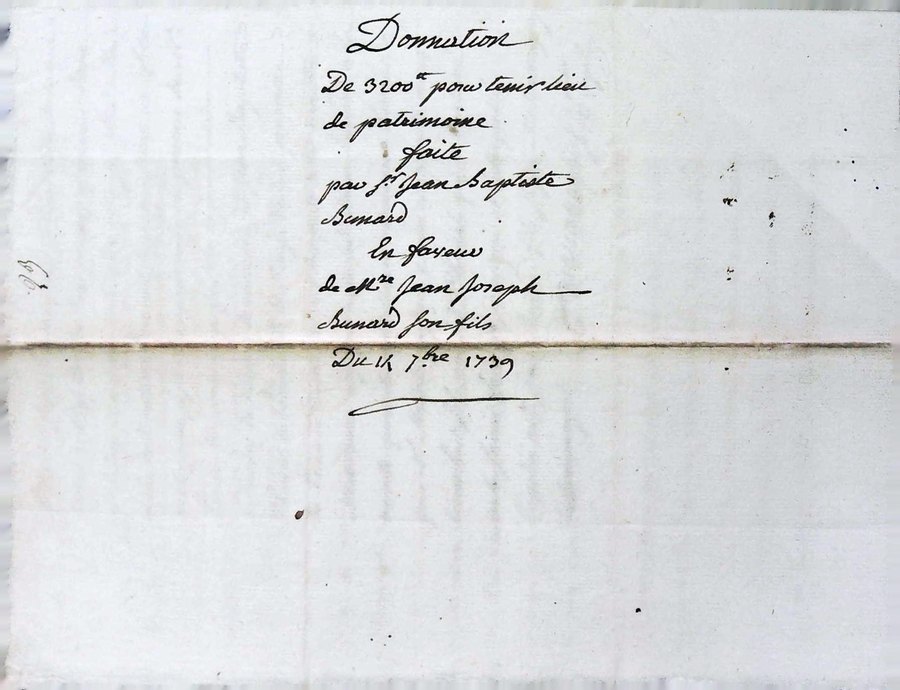 Donnation
De 3200ᵗᵗ pour tenir lieu
de patrimoine
faite
par Sr Jean Baptiste
Bunard
En faveur
de Mre Jean Joseph
Bunard son fils
Du 7bre 1739